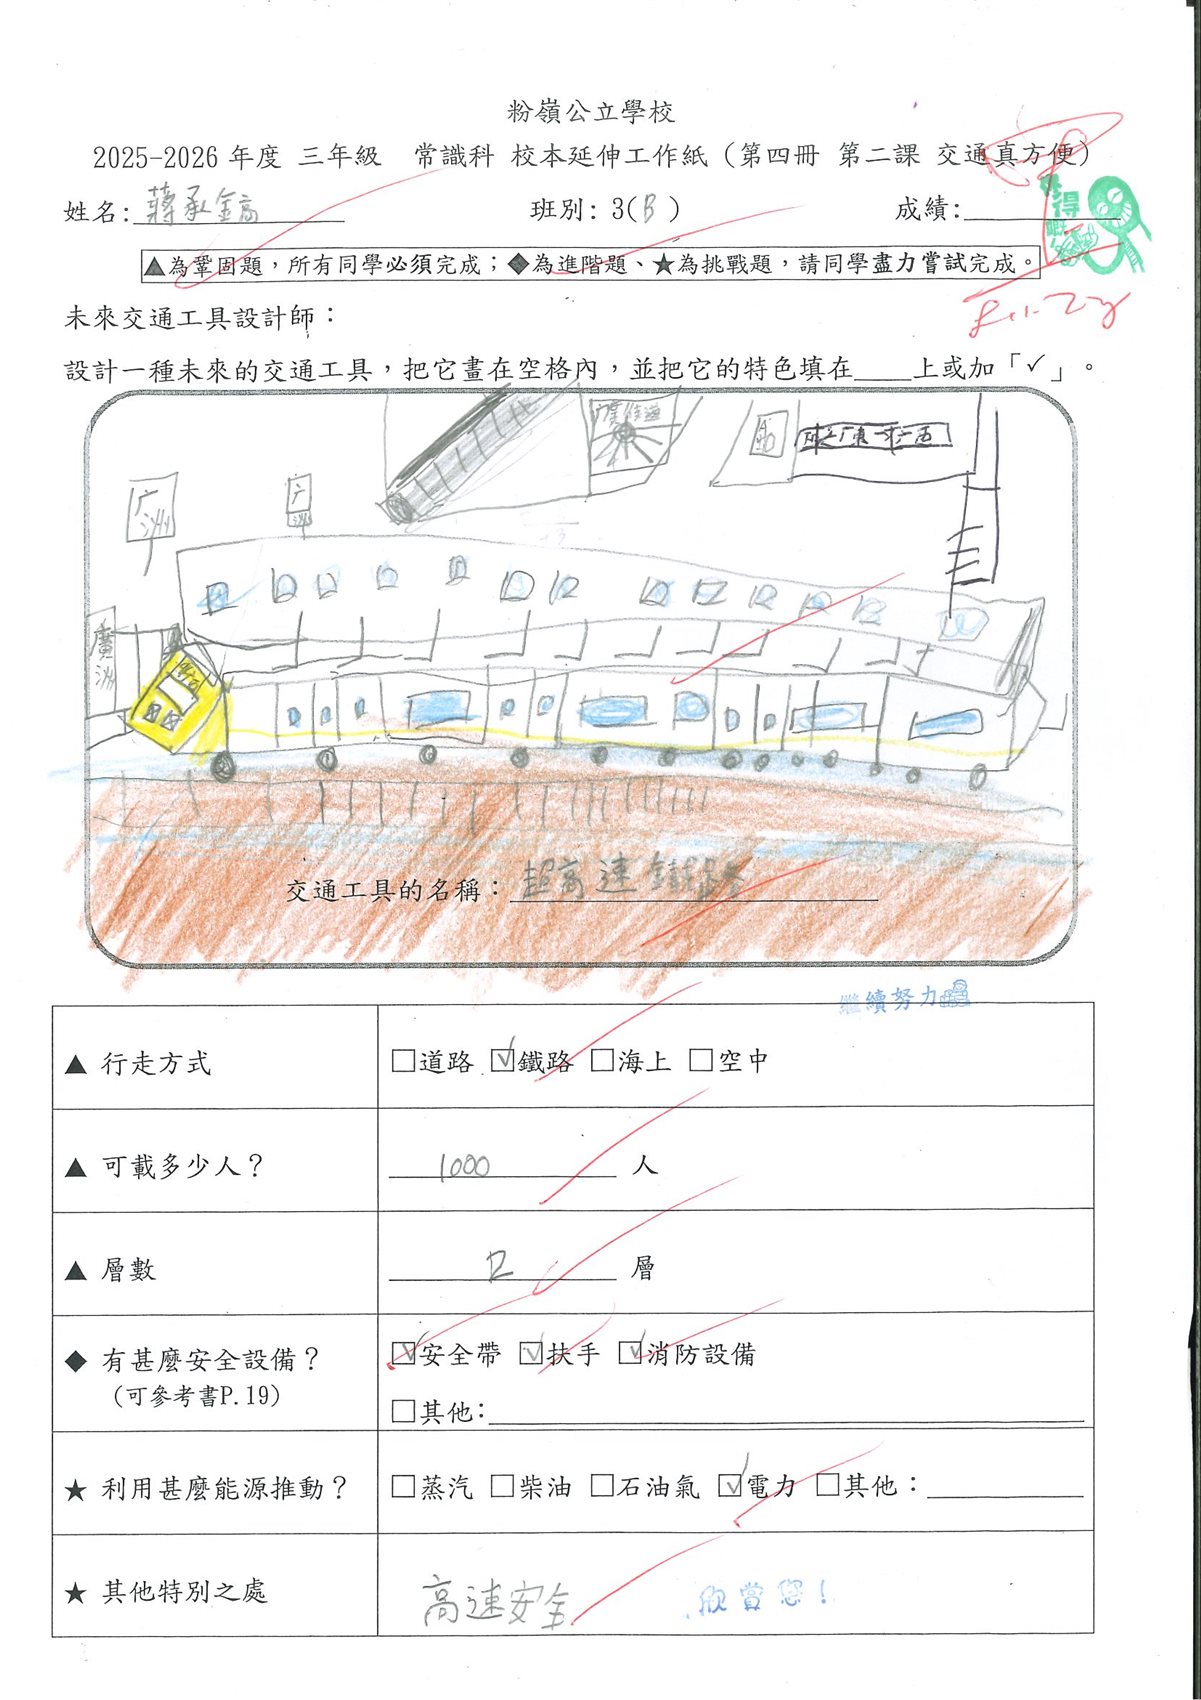 粉嶺公立學校
2025-2026 年度 三年級 常識科 校本延伸工作紙 (第四冊 第二課 交通真方便)
姓名: 蔣承鎬 班別: 3(B) 成績:
▲為鞏固題，所有同學必須完成；◆為進階題、★為挑戰題，請同學盡力嘗試完成。
未來交通工具設計師：
設計一種未來的交通工具，把它畫在空格內，並把它的特色填在____上或加「✓」。
广州
广州
廣州
交通工具的名稱： 超高速鐵
繼續努力
▲ 行走方式 □道路 ☑鐵路 □海上 □空中
▲ 可載多少人？ 1000 人
▲ 層數 2 層
◆ 有甚麼安全設備？ ☑安全帶 ☑扶手 ☑消防設備
(可參考書P.19)
□其他:
★ 利用甚麼能源推動？ □蒸汽 □柴油 □石油氣 ☑電力 □其他：
★ 其他特別之處 高速安全 欣賞您！